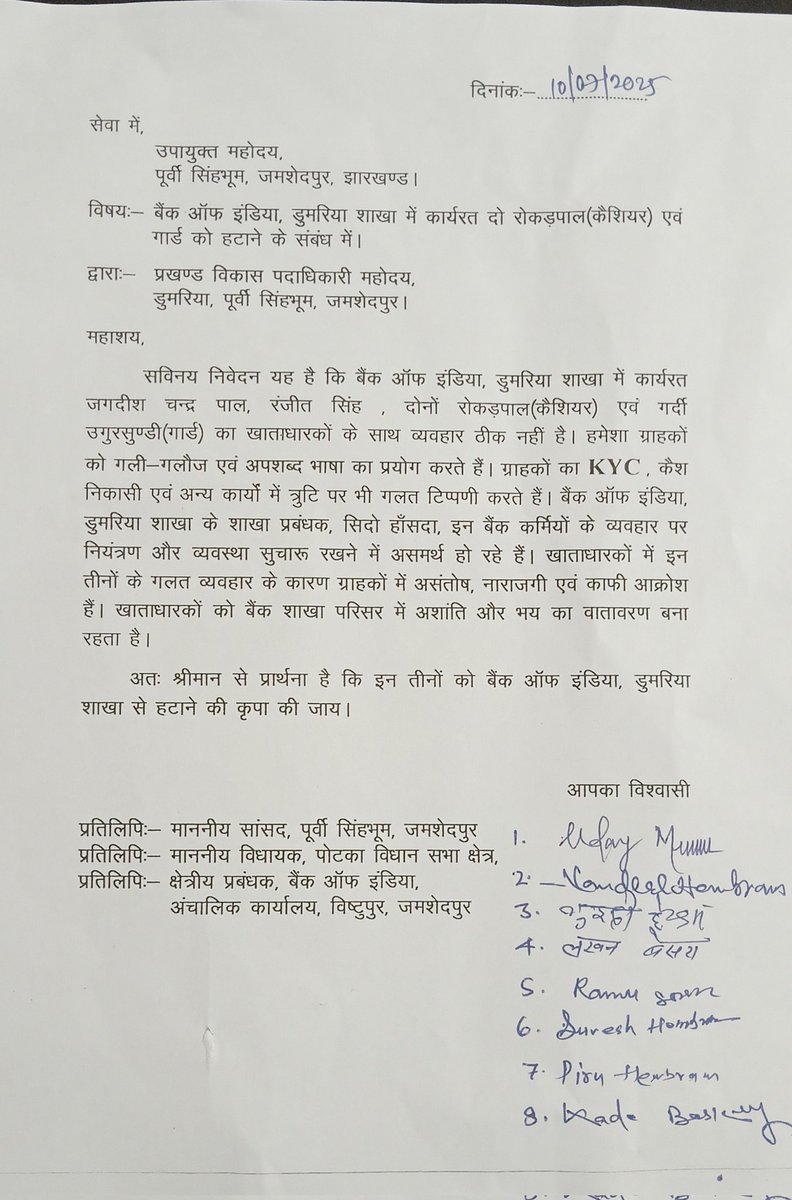 दिनांकः–10/07/2025
सेवा में,
उपायुक्त महोदय,
पूर्वी सिंहभूम, जमशेदपुर, झारखण्ड।
विषयः– बैंक ऑफ इंडिया, डुमरिया शाखा में कार्यरत दो रोकड़पाल(कैशियर) एवं
गार्ड को हटाने के संबंध में।
द्वाराः– प्रखण्ड विकास पदाधिकारी महोदय,
डुमरिया, पूर्वी सिंहभूम, जमशेदपुर।
महाशय,
सविनय निवेदन यह है कि बैंक ऑफ इंडिया, डुमरिया शाखा में कार्यरत
जगदीश चन्द्र पाल, रंजीत सिंह , दोनों रोकड़पाल(कैशियर) एवं गर्दी
उगुरसुण्डी(गार्ड) का खाताधारकों के साथ व्यवहार ठीक नहीं है। हमेशा ग्राहकों
को गली–गलौज एवं अपशब्द भाषा का प्रयोग करते हैं। ग्राहकों का KYC , कैश
निकासी एवं अन्य कार्यो में त्रुटि पर भी गलत टिप्पणी करते हैं। बैंक ऑफ इंडिया,
डुमरिया शाखा के शाखा प्रबंधक, सिदो हाँसदा, इन बैंक कर्मियों के व्यवहार पर
नियंत्रण और व्यवस्था सुचारू रखने में असमर्थ हो रहे हैं। खाताधारकों में इन
तीनों के गलत व्यवहार के कारण ग्राहकों में असंतोष, नाराजगी एवं काफी आक्रोश
हैं। खाताधारकों को बैंक शाखा परिसर में अशांति और भय का वातावरण बना
रहता है।
अतः श्रीमान से प्रार्थना है कि इन तीनों को बैंक ऑफ इंडिया, डुमरिया
शाखा से हटाने की कृपा की जाय।
आपका विश्वासी
प्रतिलिपिः– माननीय सांसद, पूर्वी सिंहभूम, जमशेदपुर
प्रतिलिपिः– माननीय विधायक, पोटका विधान सभा क्षेत्र,
प्रतिलिपिः– क्षेत्रीय प्रबंधक, बैंक ऑफ इंडिया,
अंचालिक कार्यालय, विष्टुपुर, जमशेदपुर
1. Uday Murmu
2. Hembram
3.
4. लखन बेसरा
5. Ramu
6. Suresh Hembram
7. Piru Hembram
8.